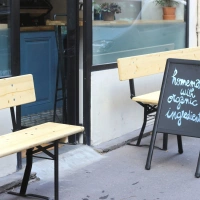 homemade
with
organic
ingredients